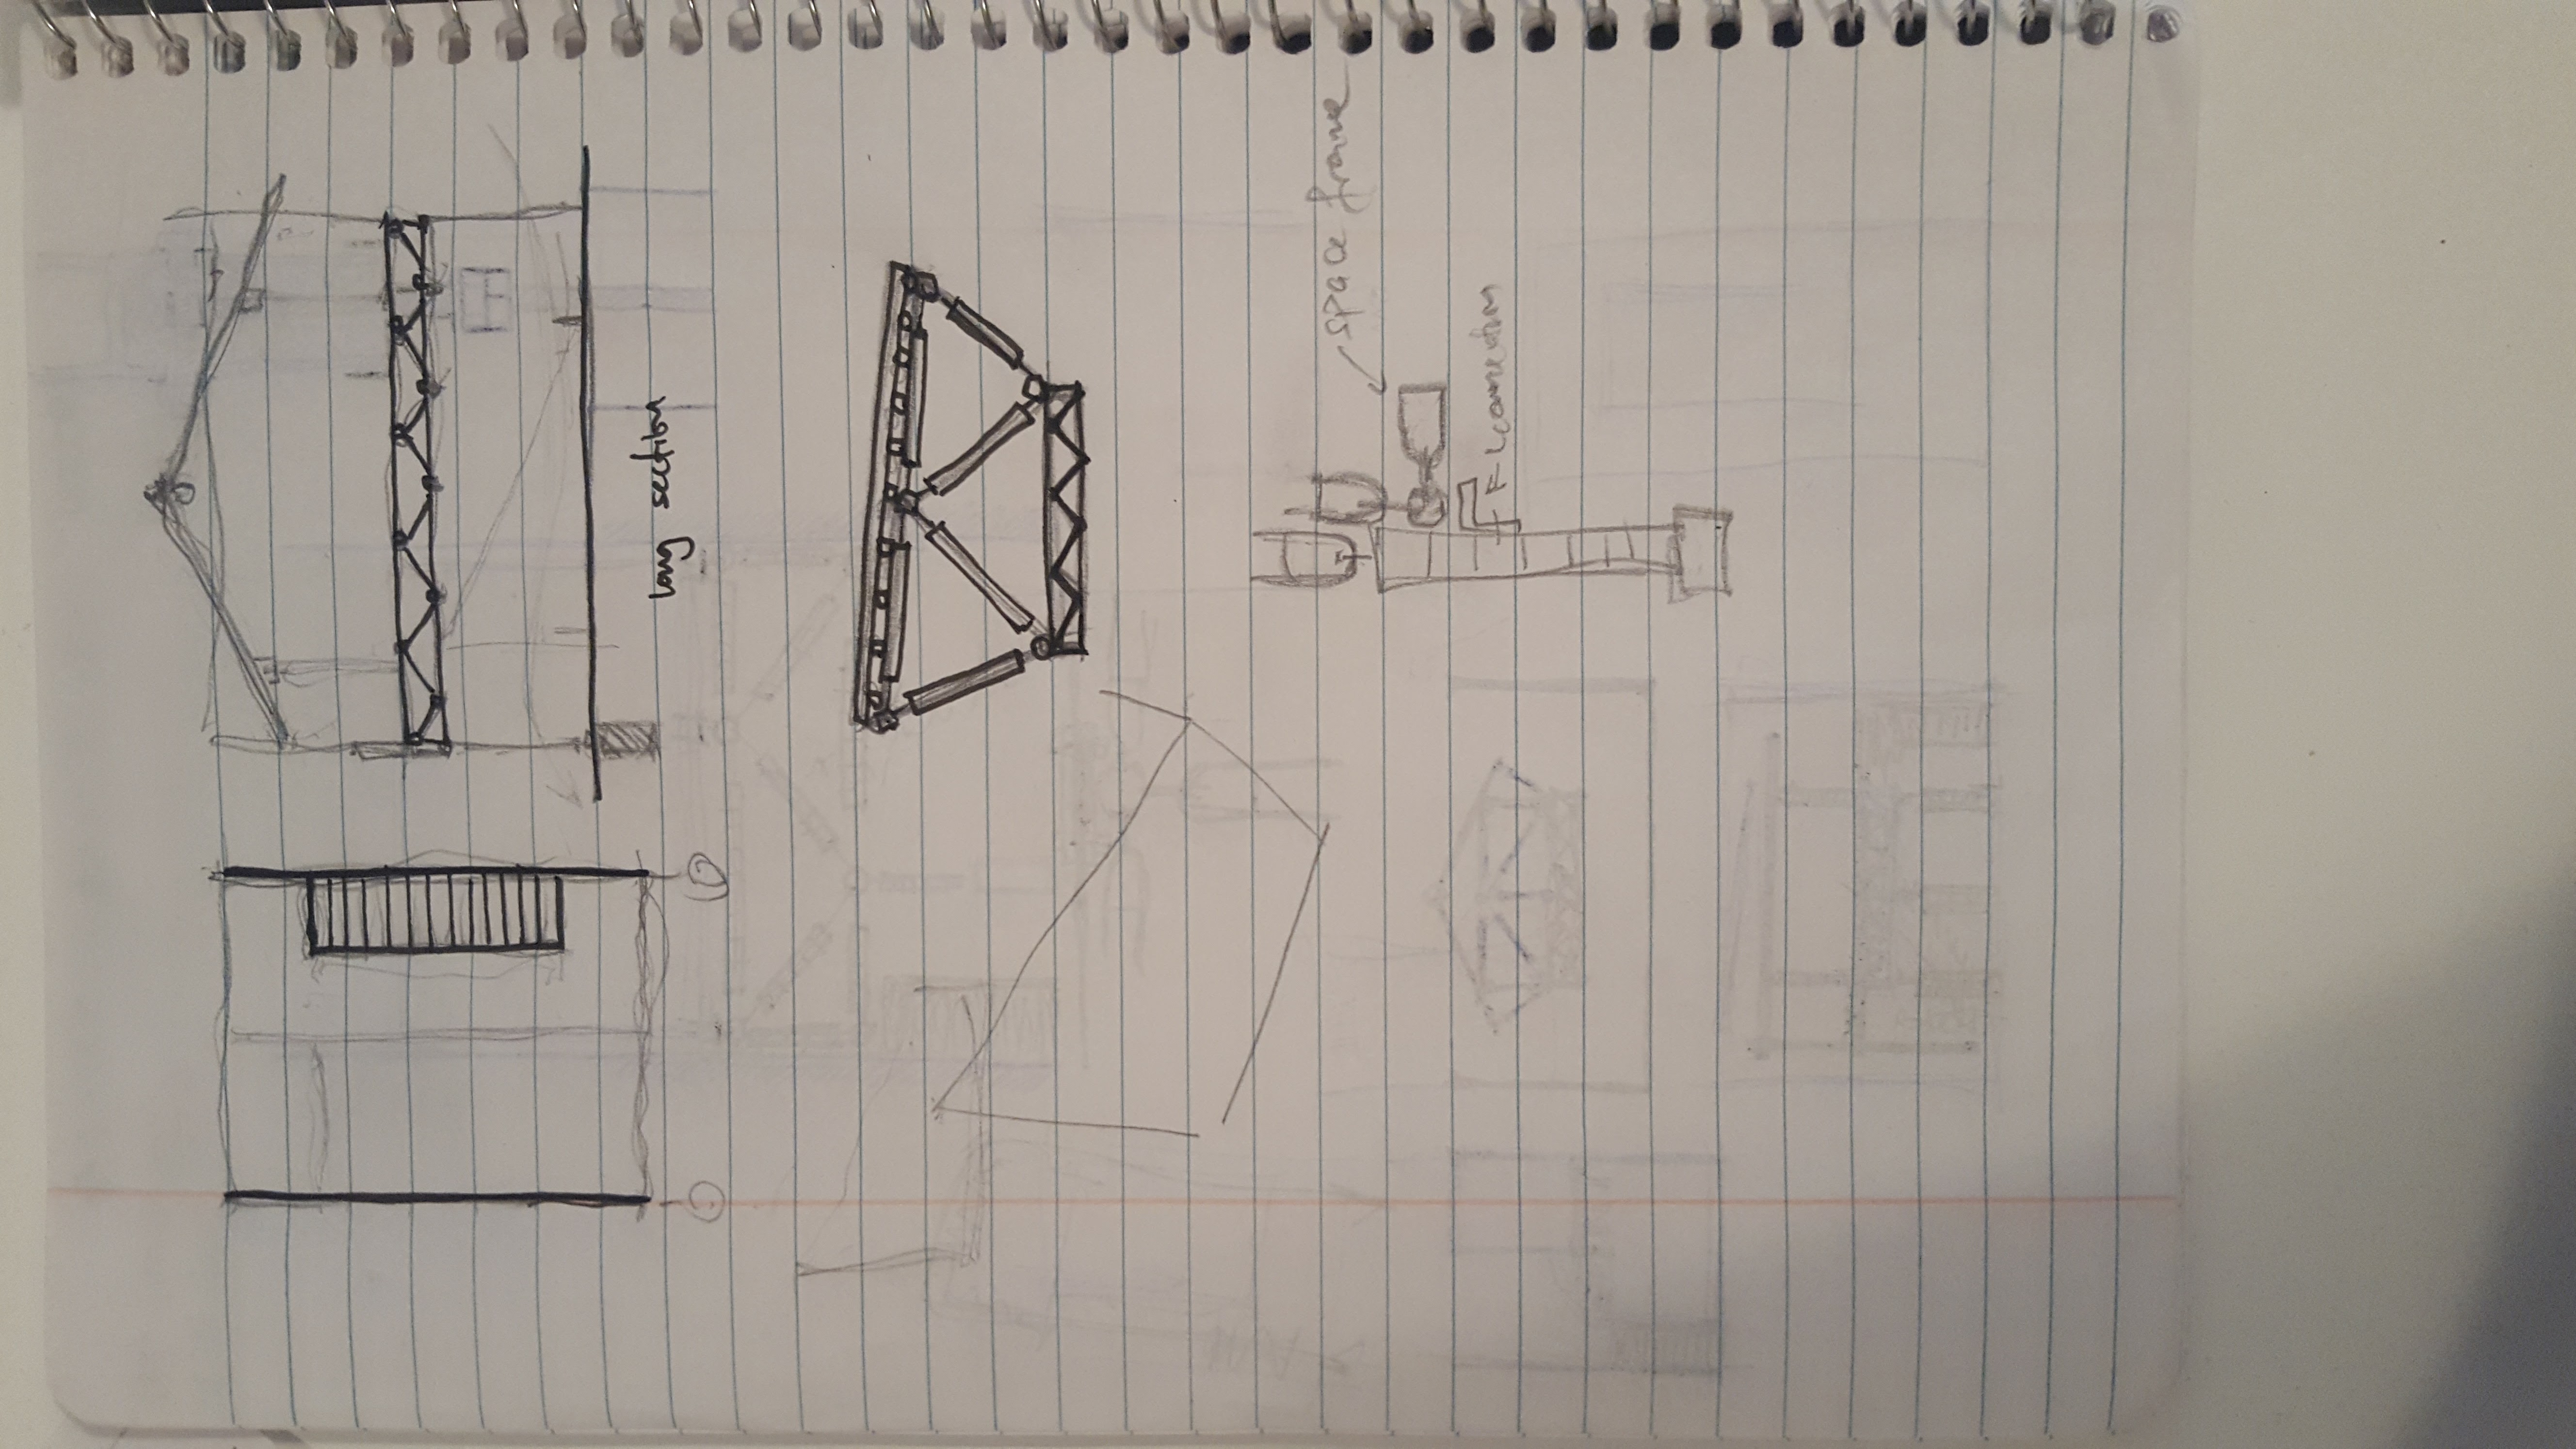 long section
space frame
connection